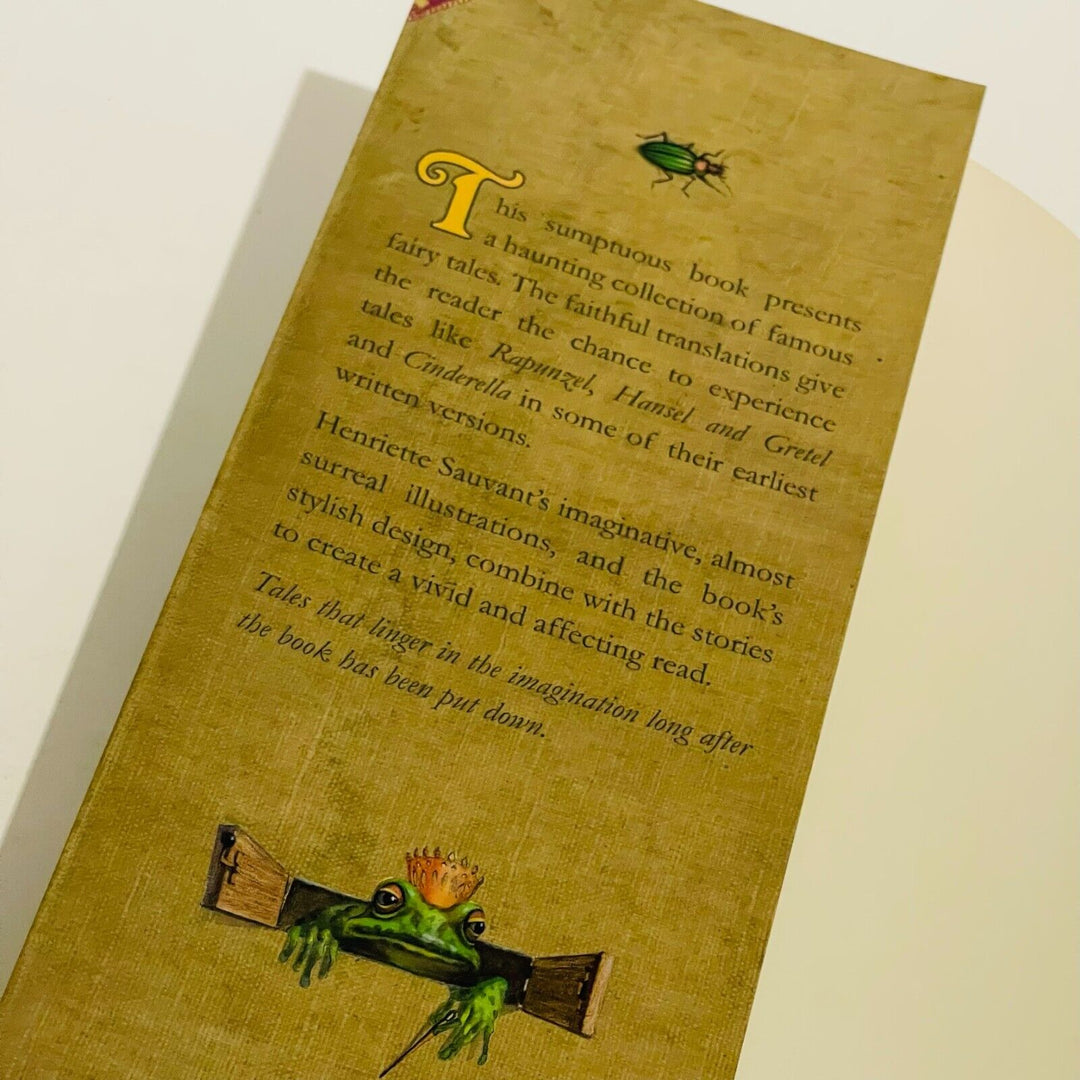 This sumptuous book presents
a haunting collection of famous
fairy tales. The faithful translations give
the reader the chance to experience
tales like Rapunzel, Hansel and Gretel
and Cinderella in some of their earliest
written versions.
Henriette Sauvant's imaginative, almost
surreal illustrations, and the book's
stylish design, combine with the stories
to create a vivid and affecting read.
Tales that linger in the imagination long after
the book has been put down.